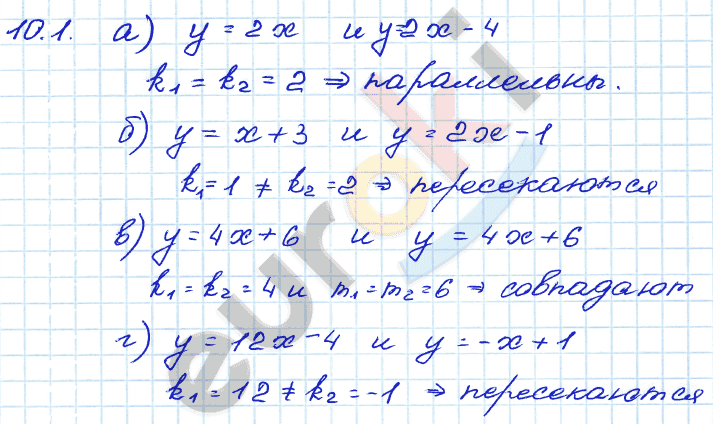 10.1. а) y = 2x и y=2x-4
k₁ = k₂ = 2 ⇒ параллельны.
б) y = x+3 и y = 2x-1
k₁=1 ≠ k₂=2 ⇒ пересекаются
в) y=4x+6 и y = 4x+6
k₁ = k₂ = 4 и m₁=m₂=6 ⇒ совпадают
г) y = 12x-4 и y = -x+1
k₁ = 12 ≠ k₂ = -1 ⇒ пересекаются
euroki